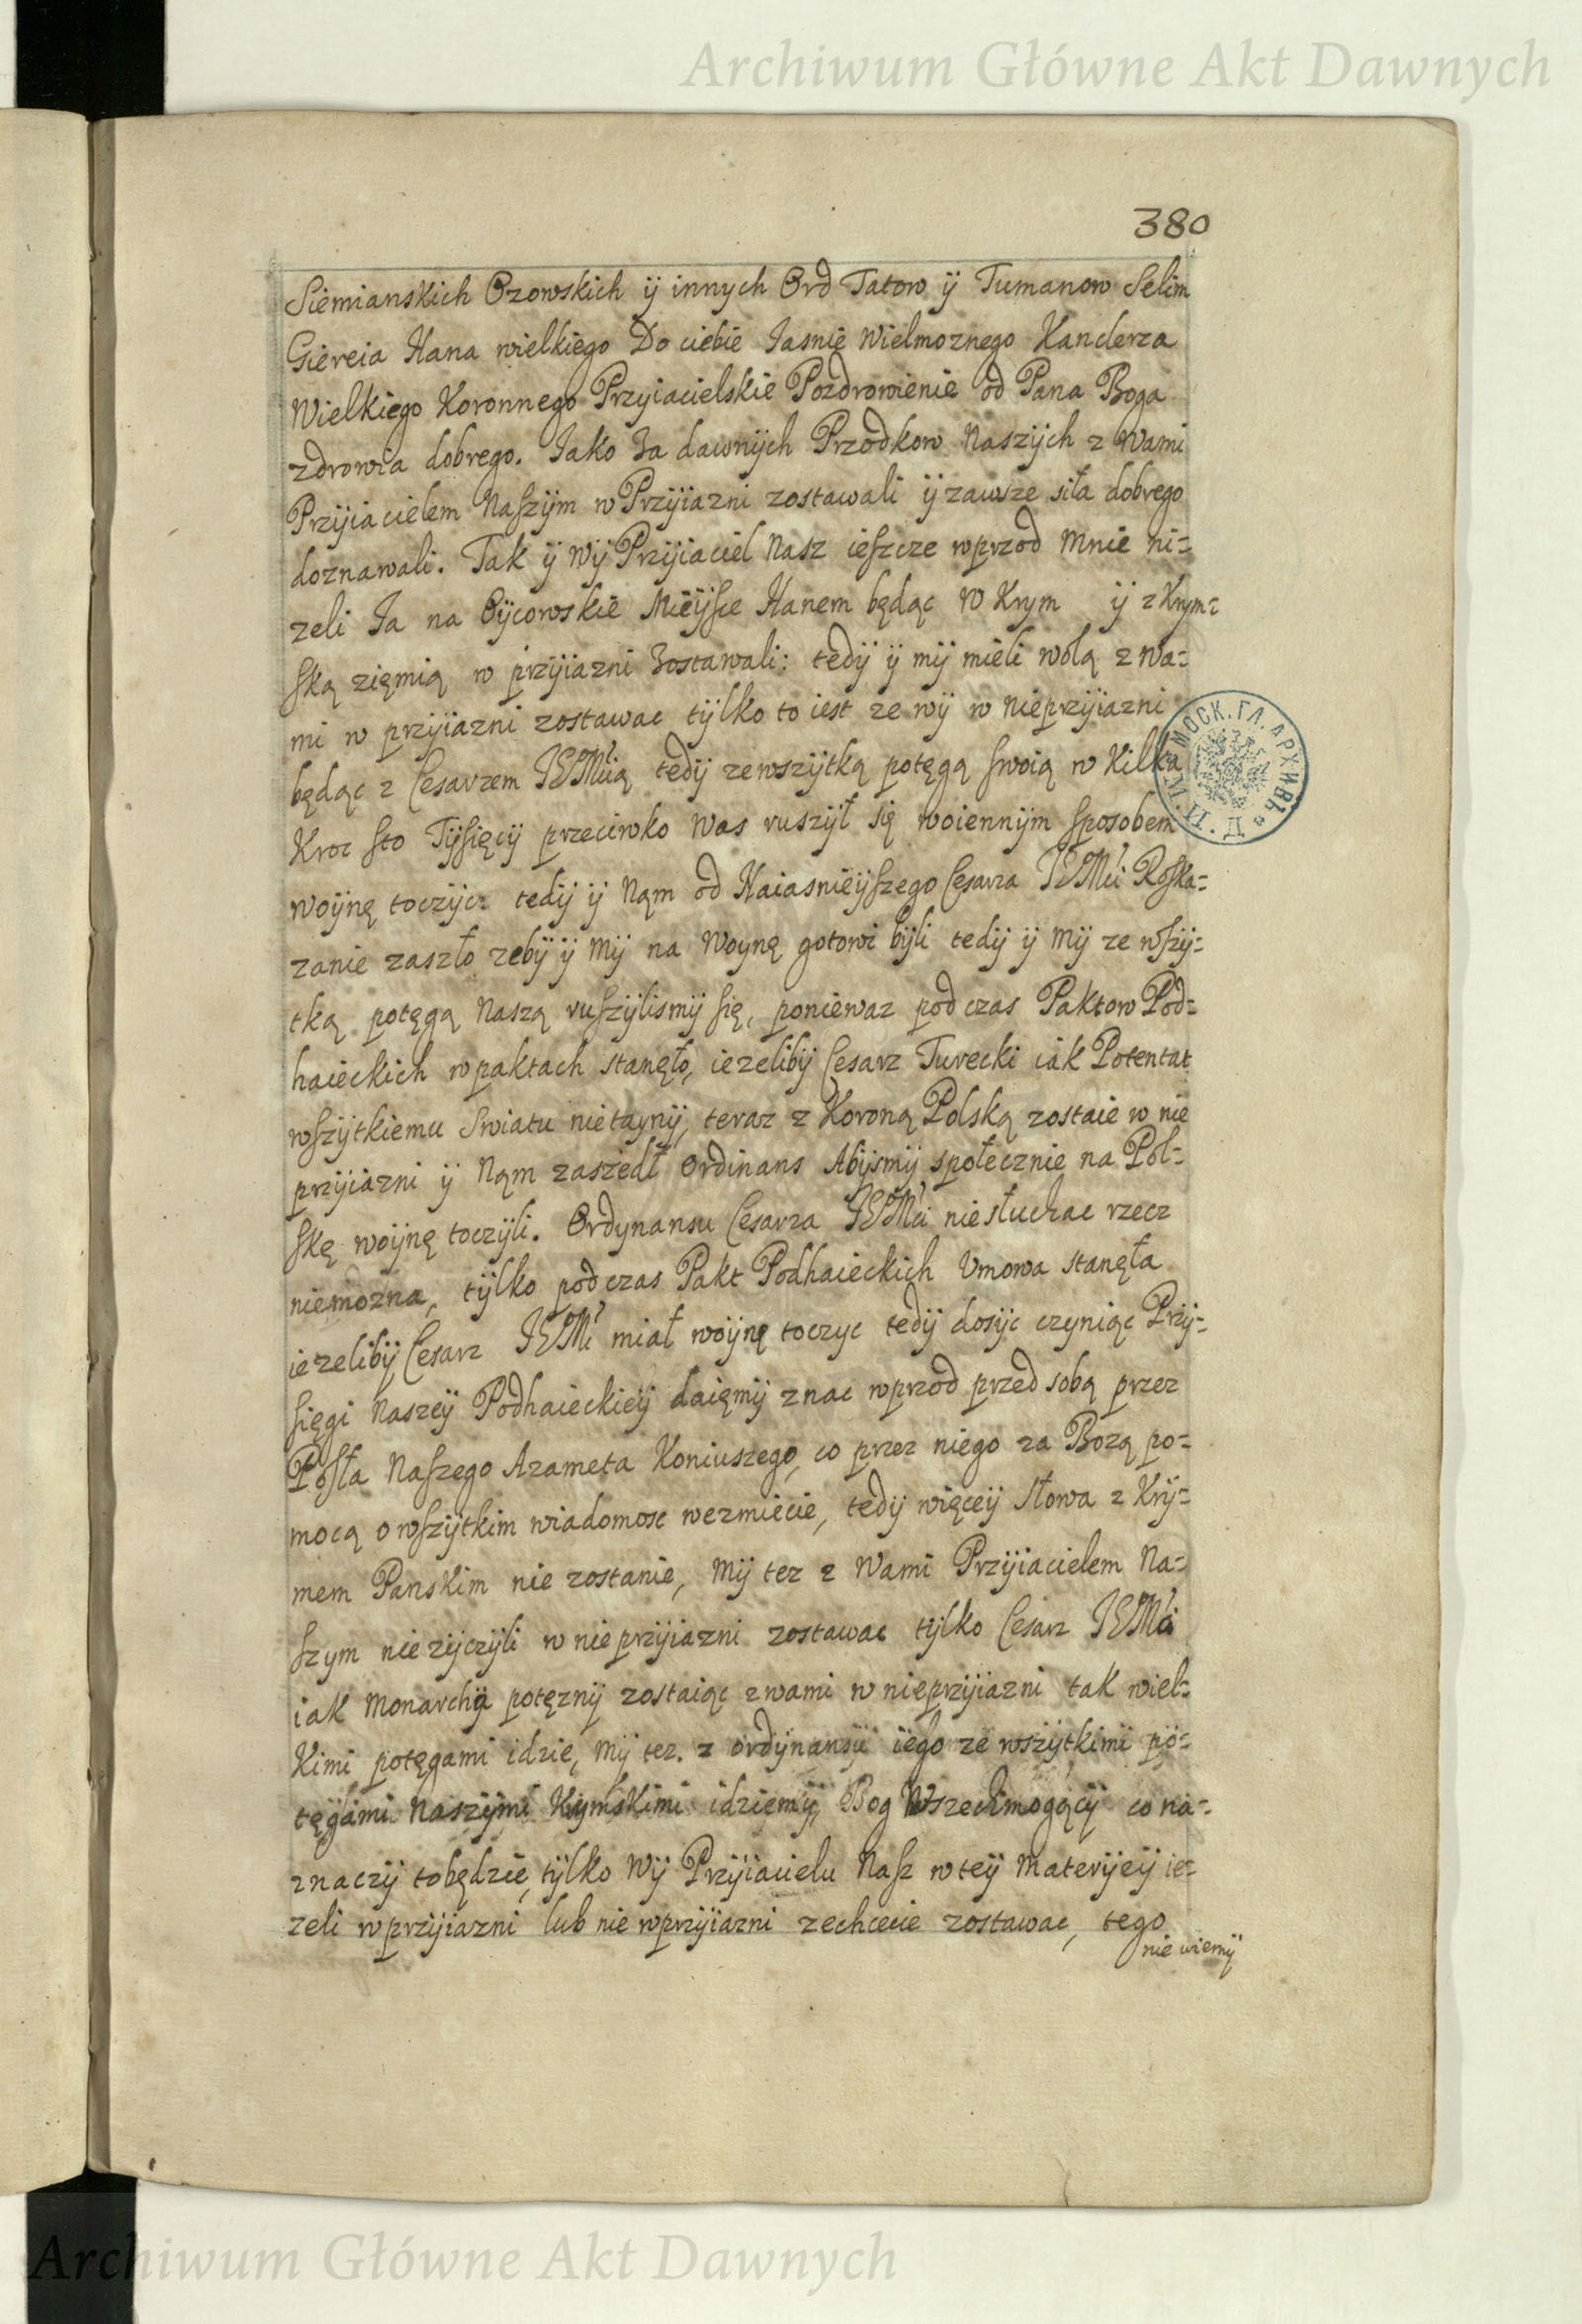 Archiwum Główne Akt Dawnych
380
Siemianskich Ozowskich ÿ innych Ord Tatow ÿ Tumanow Selim
Giereia Hana wielkiego Do ciebie Jasnie Wielmoznego Kanclerza
Wielkiego Koronnego Przyiacielskie Pozdrowienie od Pana Boga
zdrowia dobrego. Jako Za dawnÿch Przodkow Naszÿch z Wami
Przÿiacielem Naszÿm w Przÿiazni zostawali ÿ zawsze siła dobrego
doznawali. Tak ÿ Wÿ Przÿiaciel Nasz ieszcze wprzod Mnie ni=
zeli Ja na Oÿcowskie Mieÿsce Hanem będąc W Krym ÿ z Krym=
ską zięmią w przÿiazni Zostawali: tedÿ ÿ mÿ mieli wolą z Wa=
mi w przÿiazni zostawac tÿlko to iest ze wÿ w nieprzÿiazni
będąc z Cesarzem JEMcią tedÿ zewszÿtką potęgą swoią w Kilka
Kroc sto Tÿsięcÿ przeciwko Was ruszÿł się woiennÿm sposobem
woÿnę toczÿc: tedÿ ÿ Nąm od Naiasnieÿszego Cesarza JEMci Roska=
zanie zaszło zebÿ ÿ Mÿ na Woynę gotowi bÿli tedÿ ÿ Mÿ ze wszÿ=
tką potęgą Naszą ruszÿlismÿ się, poniewaz pod czas Paktow Pod=
haieckich w paktach stanęło, iezelibÿ Cesarz Turecki iak Potentat
wszÿtkiemu Swiatu nietaynÿ, teraz z Koroną Polską zostaie w nie
przÿiazni ÿ Nąm zaszedł Ordinans Abÿsmÿ społecznie na Pol=
skę woÿnę toczÿli. Ordynansu Cesarza JEMci niesłuchac rzecz
niemozna, tÿlko pod czas Pakt Podhaieckich Umowa stanęła
iezelibÿ Cesarz JEMc miał woÿnę toczyc tedÿ dosÿc czyniąc Przÿ=
sięgi Naszeÿ Podhaieckieÿ daięmÿ znac wprzod przed sobą przez
Posła Naszego Azameta Koniuszego, co przez niego za Bozą po=
mocą o wszÿtkim wiadomosc wezmiecie, tedÿ więceÿ słowa z Krÿ=
mem Panskim nie zostanie, Mÿ tez z Wami Przÿiacielem Na=
szym nie zÿczÿli w nieprzÿiazni zostawac tÿlko Cesarz JEMci
iak Monarcha potęznÿ zostaiąc z wami w nieprzÿiazni tak wiel=
Kimi potęgami idzie, Mÿ tez. z ordÿnansu iego ze wszÿtkimi po=
tęgami Naszÿmi Krymskimi idziemÿ, Bog Wszechmogącÿ co na=
znaczÿ to będzie, tÿlko Wÿ Przÿiacielu Nasz w teÿ Materÿeÿ ie=
zeli w przÿiazni lub nie wprzÿiazni zechcecie zostawac, tego
nie wiemÿ
МОСК. ГЛ. АРХИВЪ
Archiwum Główne Akt Dawnych